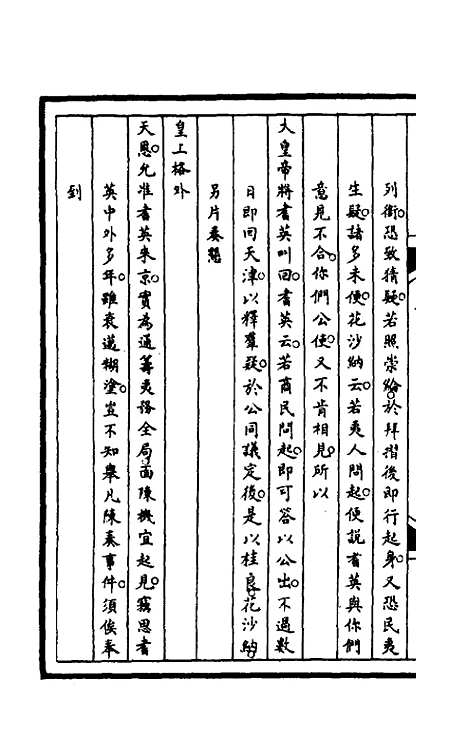 列銜恐致猜疑若照崇綸於拜摺後即行起身又恐民夷
生疑諸多未便花沙納云若夷人問起便說耆英與你們
意見不合你們公使又不肯相見所以
大皇帝將耆英叫回耆英云若商民問起即可答以公出不過數
日即回天津以釋羣疑於公同議定後是以桂良花沙納
另片奏懇
皇上格外
天恩允准耆英來京實為通籌夷務全局面陳機宜起見竊思耆
英中外多年雖衰邁糊塗豈不知舉凡陳奏事件須俟奉
到